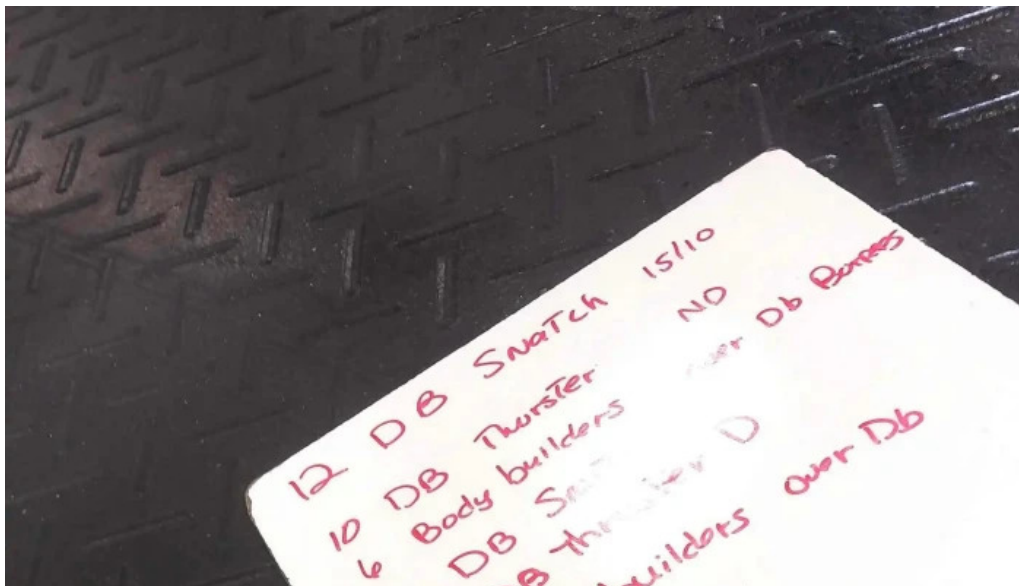 12 DB Snatch 15/10
10 DB Thurster ND
6 Body builders over Db
DB
thruster D
builders over Db